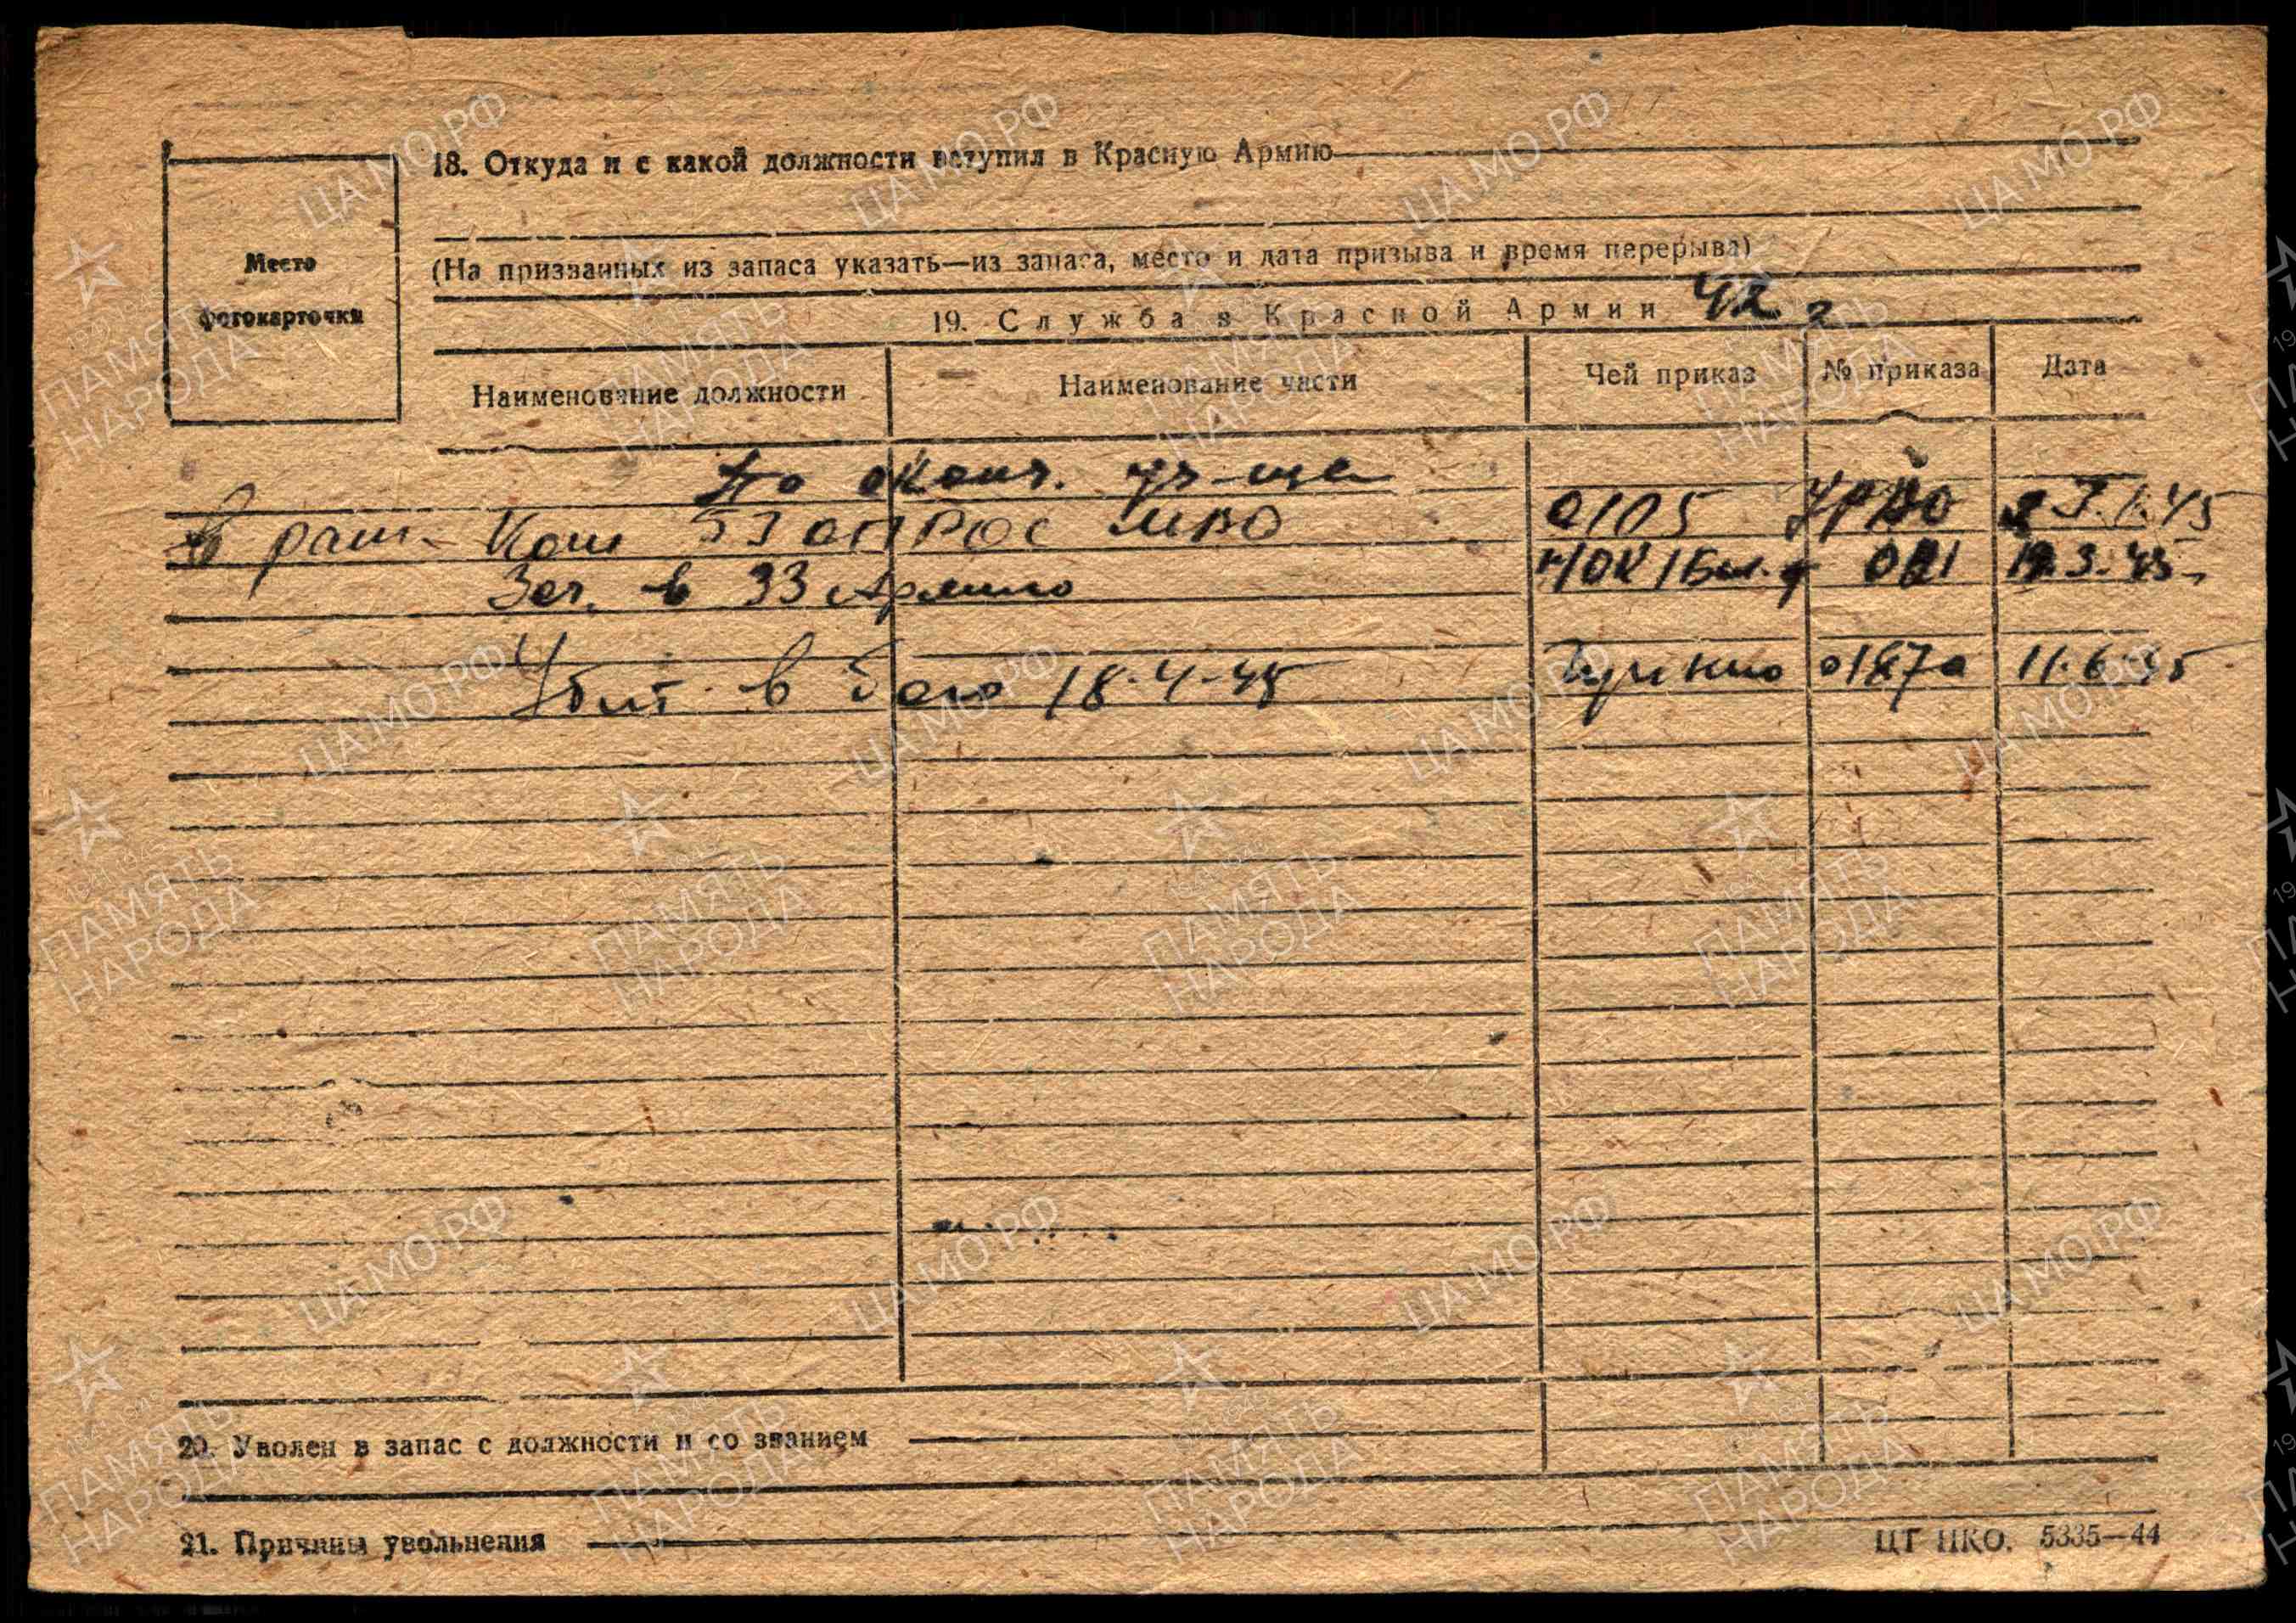 18. Откуда и с какой должности вступил в Красную Армию
(На призванных из запаса указать—из запаса, место и дата призыва и время перерыва)
Место
фотокарточки
19. Служба в Красной Армии 42 г
Наименование должности Наименование части Чей приказ № приказа Дата
По оконч. уч-ща
В расп. Ком ОПРОС МВО 0105 УрВО 1.45
Зач. в 33 Армию 1 Бел. ф 3.45
Убит в бою 18.4.45 11.6.45
20. Уволен в запас с должности и со званием
21. Причины увольнения
ЦТ НКО. 5335—44
ЦАМО.РФ
ПАМЯТЬ
НАРОДА